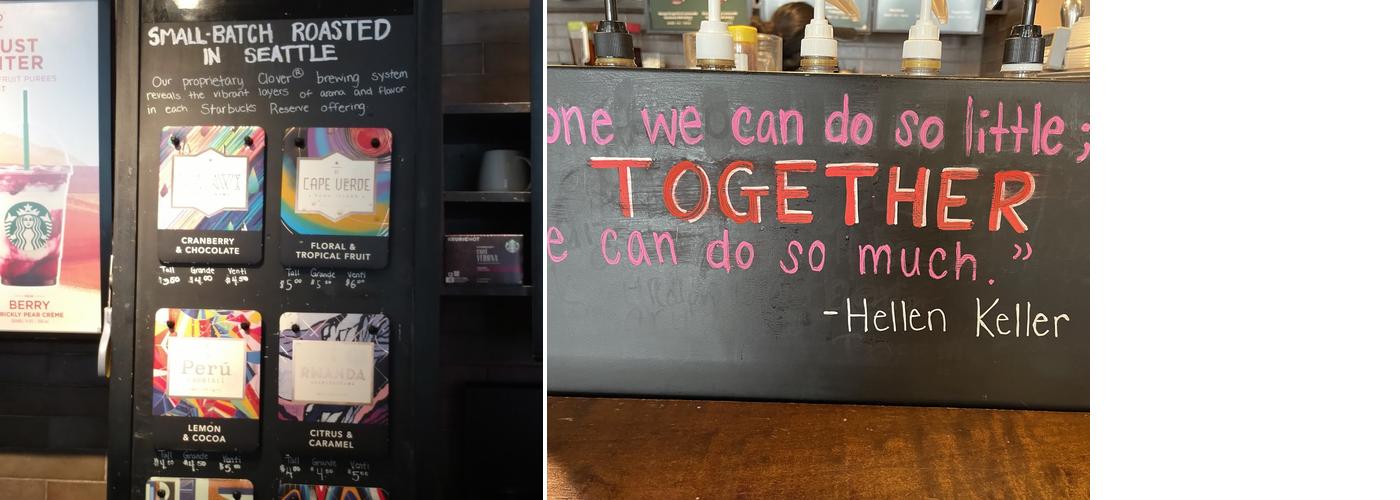 UST
FRUIT PUREES
BERRY
RICKLY PEAR CRÈME
SMALL-BATCH ROASTED
IN SEATTLE
Our proprietary Clover® brewing system
reveals the vibrant layers of aroma and flavor
in each Starbucks Reserve offering.
CAPE VERDE
CRANBERRY
& CHOCOLATE
FLORAL &
TROPICAL FRUIT
Tall Grande Venti
$350 $4.00 $4.50
Tall Grande Venti
$500 $5 $6
KEURIG HOT
Perú
RWANDA
LEMON
& COCOA
CITRUS &
CARAMEL
Tall Grande Venti
$4.00 $4.50 $5.
Tall Grande Venti
$4 $5
one we can do so little;
TOGETHER
e can do so much.”
-Hellen Keller